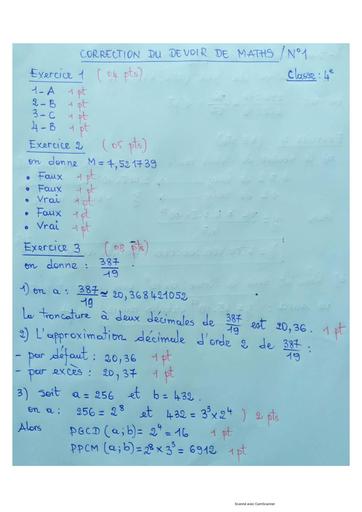 CORRECTION DU DEVOIR DE MATHS / N°1
Exercice 1 (04 pts)
Classe : 4e
1 - A 1 pt
2 - B 1 pt
3 - C 1 pt
4 - B 1 pt
Exercice 2 (05 pts)
on donne M = 7,521739
• Faux 1 pt
• Faux 1 pt
• Vrai 1 pt
• Faux 1 pt
• Vrai 1 pt
Exercice 3 (08 pts)
on donne : 387/19
1) on a : 387/19 ≃ 20,368421052
La troncature à deux décimales de 387/19 est 20,36. 1 pt
2) L'approximation décimale d'orde 2 de 387/19 :
- par défaut : 20,36 1 pt
- par excès : 20,37 1 pt
3) Soit a = 256 et b = 432.
on a : 256 = 2⁸ et 432 = 3³ x 2⁴ ) 2 pts
Alors PGCD (a;b) = 2⁴ = 16 1 pt
PPCM (a;b) = 2⁸ x 3³ = 6912 1 pt
Scanné avec CamScanner